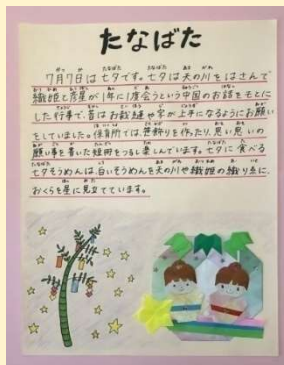 たなばた
7月7日は七夕です。七夕は天の川をはさんで
織姫と彦星が1年に1度会うという中国のお話をもとに
した行事で、昔はお裁縫や字が上手になるようにお願い
をしていました。保育所では、笹飾りを作ったり、思い思いの
願い事を書いた短冊をつるし楽しんでいます。七夕に食べる
七夕そうめんは、白いそうめんを天の川や織姫の織り糸に、
おくらを星に見立てています。